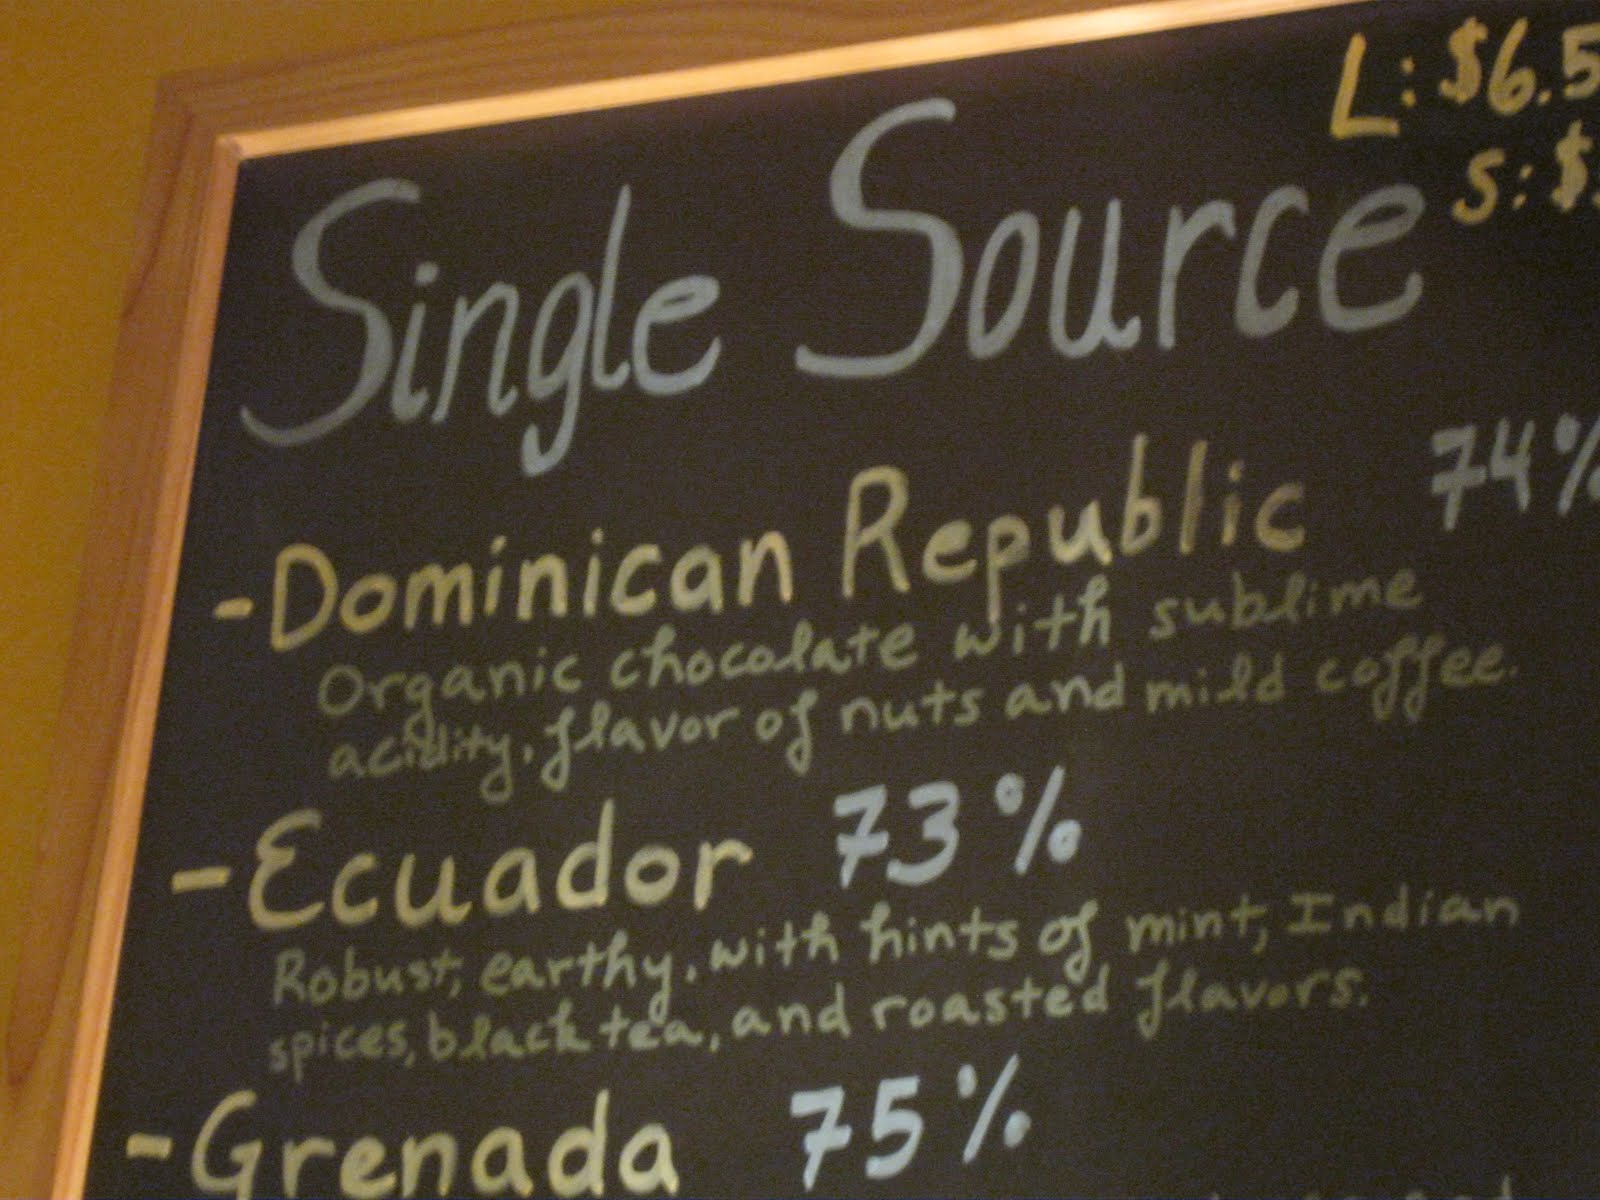 L: $6.5
S: $
Single Source
-Dominican Republic 74%
Organic chocolate with sublime
acidity, flavor of nuts and mild coffee.
-Ecuador 73%
Robust, earthy, with hints of mint, Indian
spices, black tea, and roasted flavors.
-Grenada 75%